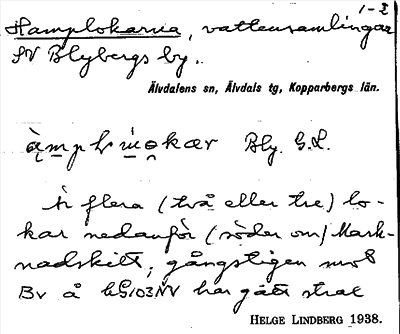 1-2
Hamplokarna, vattensamlingar
SV Blybergs by.
Älvdalens sn, Älvdals tg, Kopparbergs län.
Bly. G.L.
Är flera (två eller tre) lo-
kar nedanför (söder om) Mark-
nadskilt, gångstigen mot
Bv å bS103NV har gått strax
HELGE LINDBERG 1938.